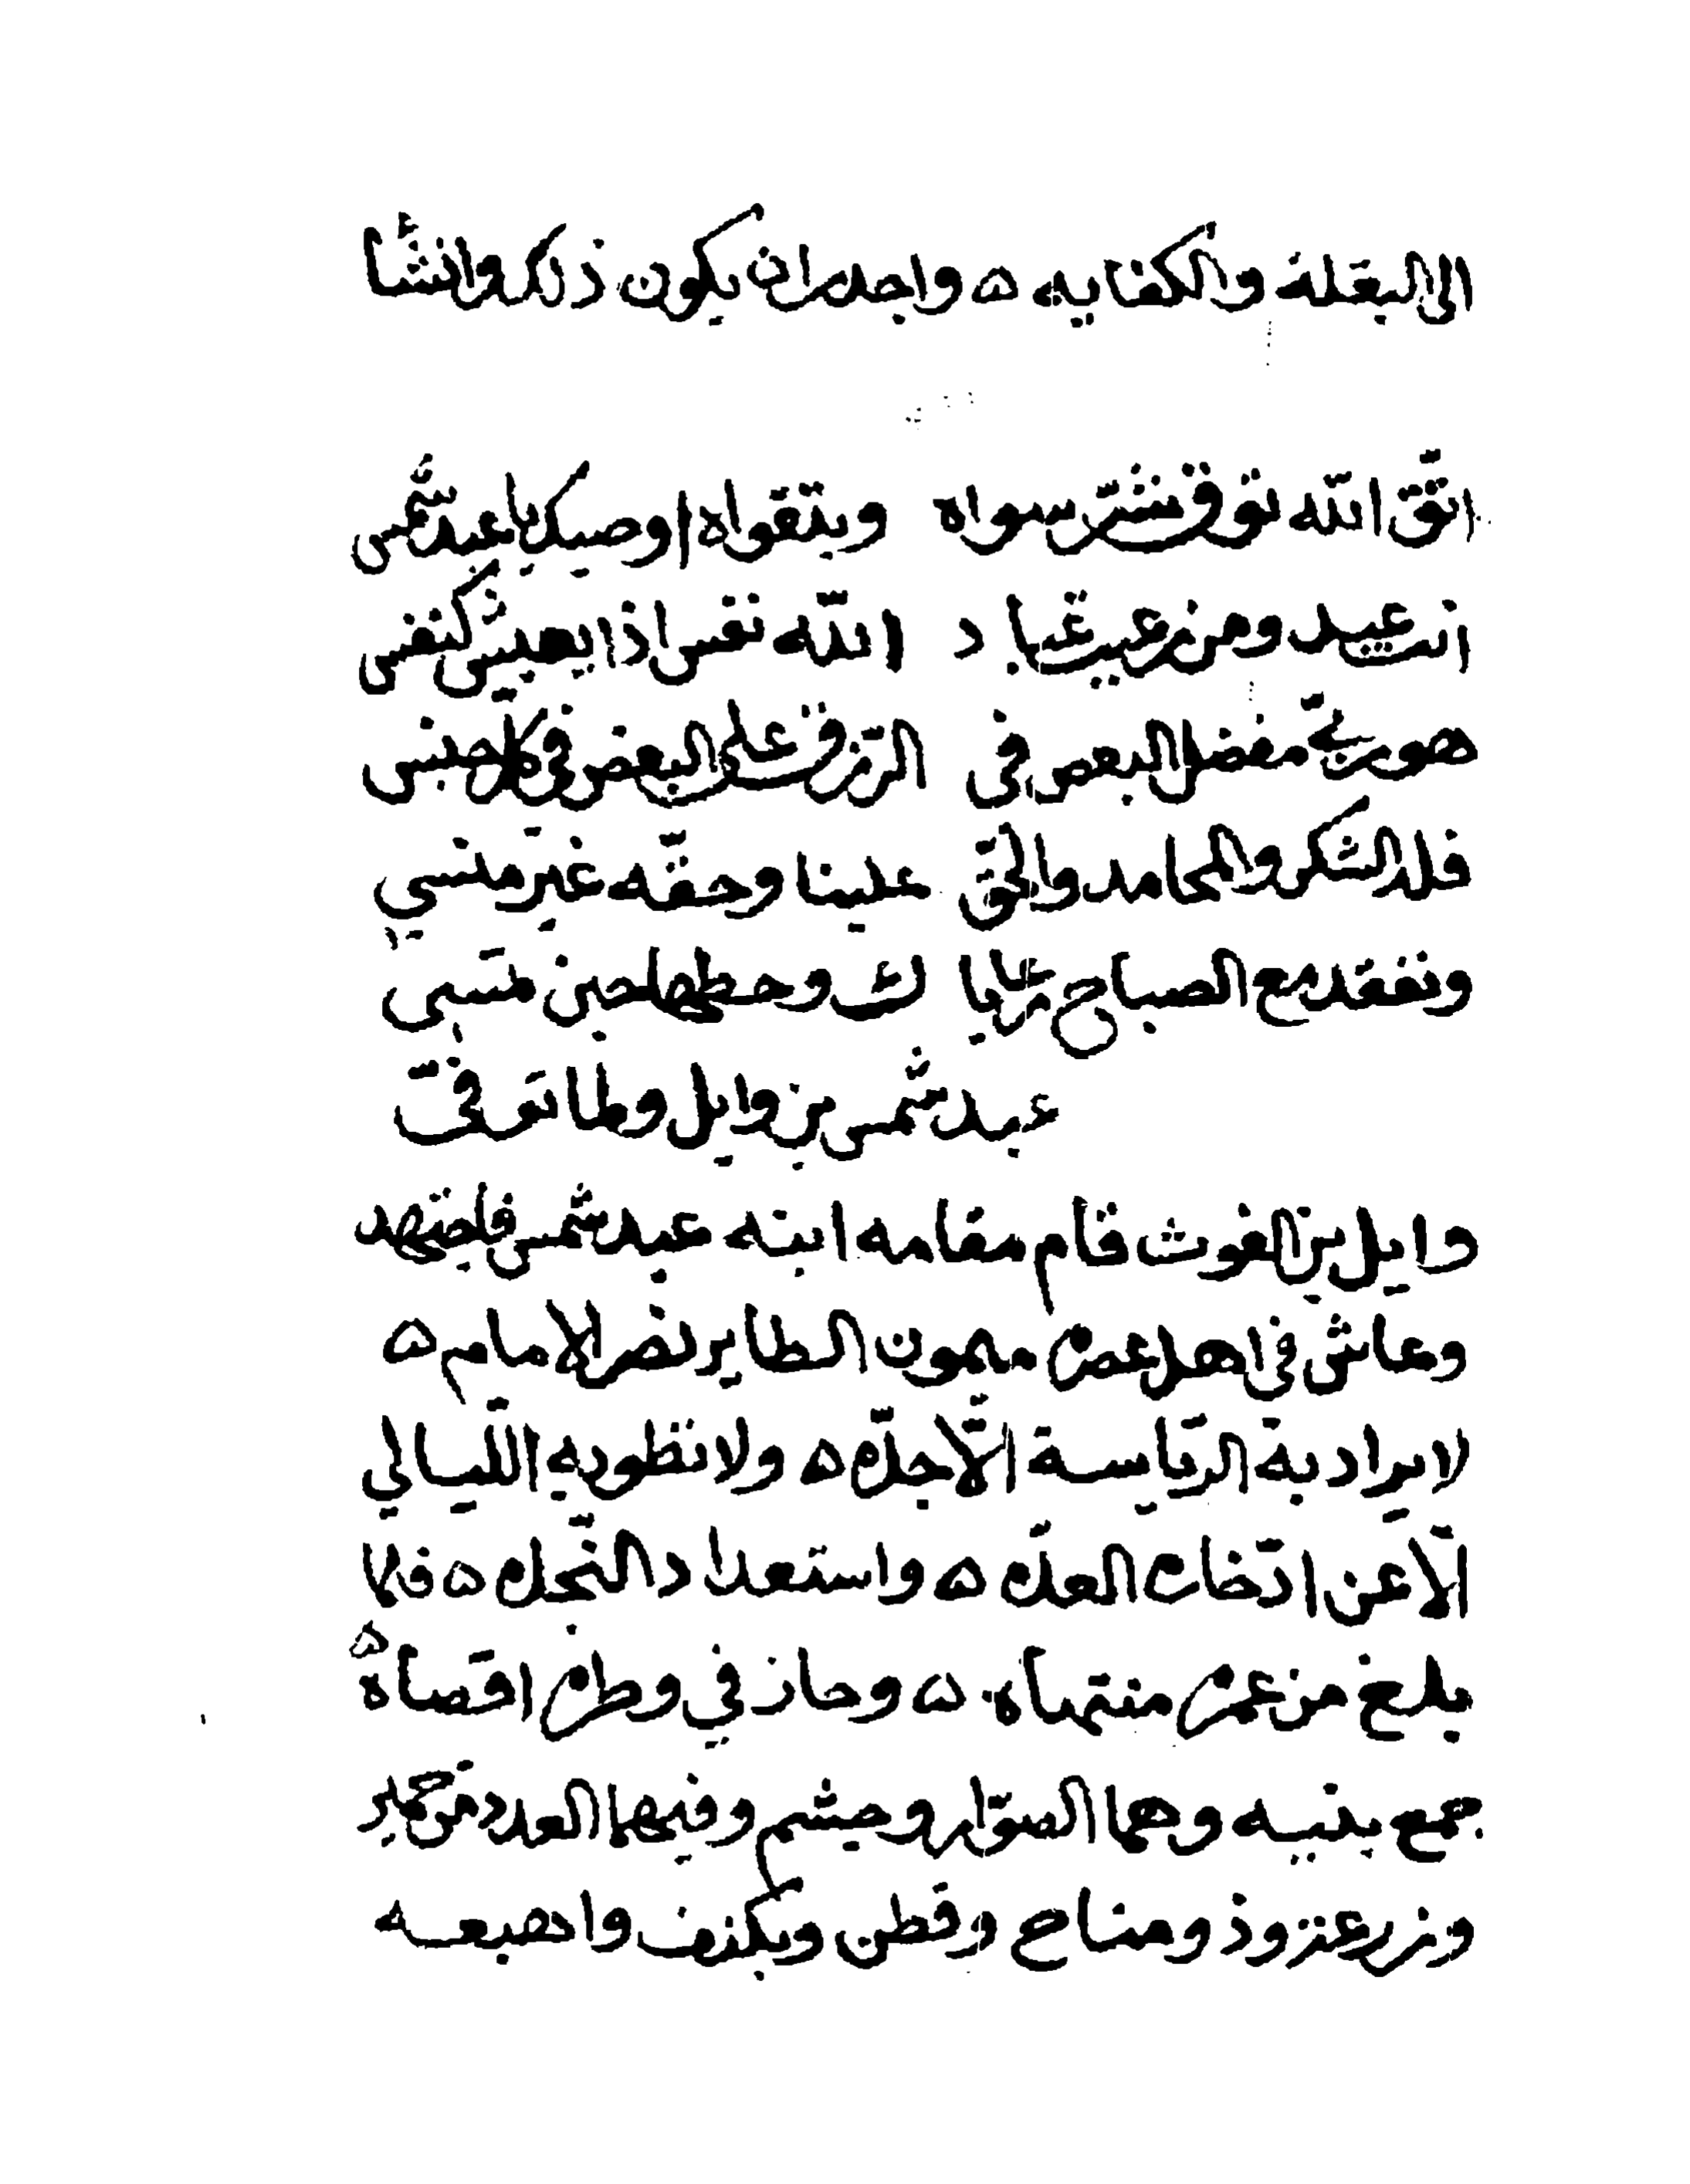 الى البقلة والكفايه ٥ واجدران يكون ذلك وانشا
اتق الله توق شر سواه وبتقواه اوصيك يا عبد شمس
انت عبد ومن رعيت عباد الله نفس اذا يعيش كنفس
صورت مفضل البعض في الرزق على البعض في كل جنس
فله الشكر والمحامد والحق علينا وحقه غير منسي
وتفقد مع الصباح رعايا ك وحطها حين تمسي
عبد شمس بن وايل ولما توفي
وايل بن الغوث قام مقامه ابنه عبد شمس
وعاش في اهل عصره ميمون الطاير نضر الامام ٥
لا يراد به الرياسة الا جلاله ٥ ولا تطور به الليالي
الا عن العدل ٥ واستعداد ٥ فلما
بلغ من عمره منتهاه ٥ وحاز في وطره اقصاه ٥
جمع بنيه وهما الصوار وجشم وفيهما العدد من حمير
وزرعة وذو مناح وقطن